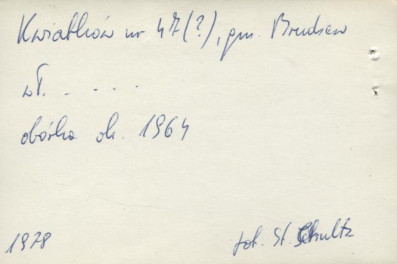 Kwiatków nr 47(?), gm. Brudzew
wł. . . . .
obórka ok. 1964
1978 fot. St. Schultz